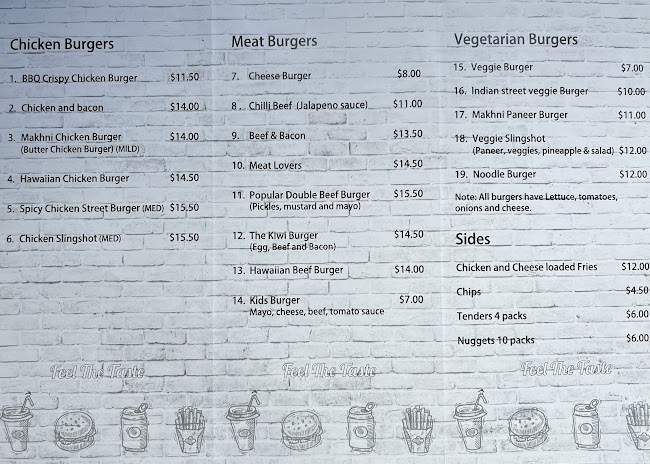 Chicken Burgers
1. BBQ Crispy Chicken Burger $11.50
2. Chicken and bacon $14.00
3. Makhni Chicken Burger $14.00
(Butter Chicken Burger) (MILD)
4. Hawaiian Chicken Burger $14.50
5. Spicy Chicken Street Burger (MED) $15.50
6. Chicken Slingshot (MED) $15.50
Feel The Taste
Meat Burgers
7. Cheese Burger $8.00
8. Chilli Beef (Jalapeno sauce) $11.00
9. Beef & Bacon $13.50
10. Meat Lovers $14.50
11. Popular Double Beef Burger $15.50
(Pickles, mustard and mayo)
12. The Kiwi Burger $14.50
(Egg, Beef and Bacon)
13. Hawaiian Beef Burger $14.00
14. Kids Burger $7.00
Mayo, cheese, beef, tomato sauce
Feel The Taste
Vegetarian Burgers
15. Veggie Burger $7.00
16. Indian street veggie Burger $10.00
17. Makhni Paneer Burger $11.00
18. Veggie Slingshot
(Paneer, veggies, pineapple & salad) $12.00
19. Noodle Burger $12.00
Note: All burgers have Lettuce, tomatoes,
onions and cheese.
Sides
Chicken and Cheese loaded Fries $12.00
Chips $4.50
Tenders 4 packs $6.00
Nuggets 10 packs $6.00
Feel The Taste